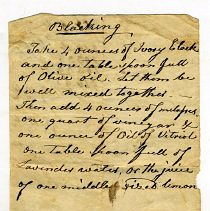 Blacking
Take 4 ounces of Ivory Black
and one table spoon full
of Olive Oil. Let them be
well mixed together
Then add 4 ounces of
one quart of vinegar &
one ounce of Oil of Vitriol
one table spoon full of
Lavender water, or the juice
of one middle Sized Lemon